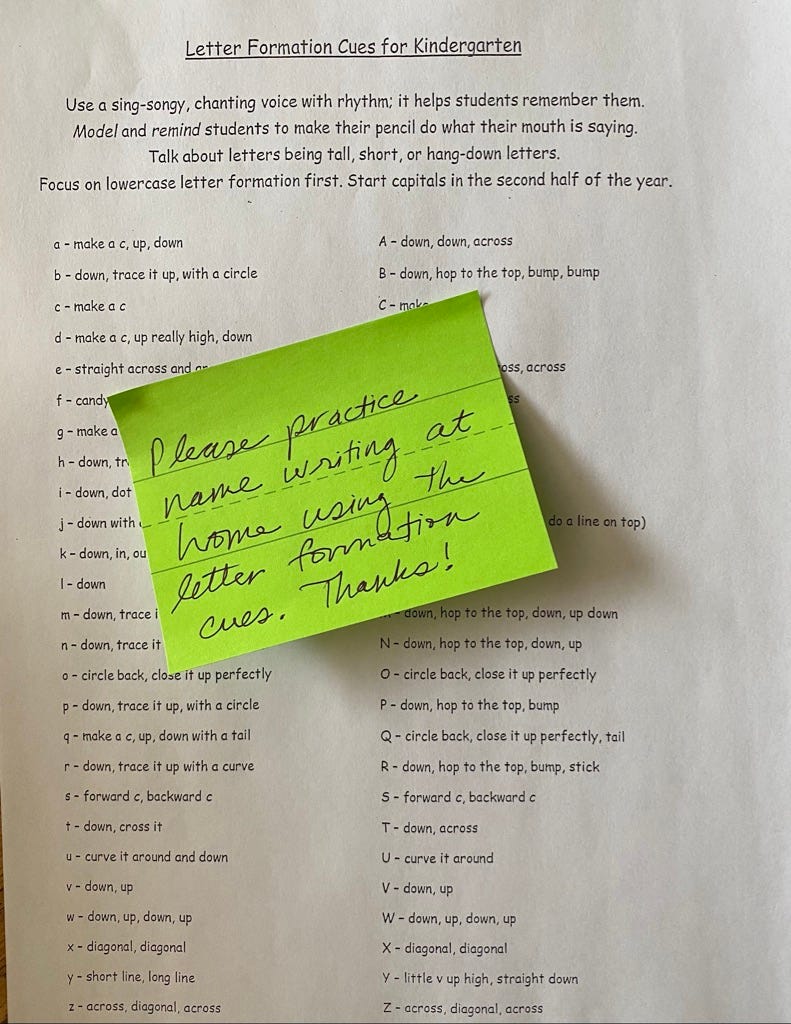 Letter Formation Cues for Kindergarten
Use a sing-songy, chanting voice with rhythm; it helps students remember them.
Model and remind students to make their pencil do what their mouth is saying.
Talk about letters being tall, short, or hang-down letters.
Focus on lowercase letter formation first. Start capitals in the second half of the year.
a - make a c, up, down
A - down, down, across
b - down, trace it up, with a circle
B - down, hop to the top, bump, bump
c - make a c
C - make
d - make a c, up really high, down
e - straight across and
across
f - candy
g - make a
h - down,
i - down, dot
j - down with
do a line on top)
k - down, in,
l - down
m - down, trace
down, hop to the top, down, up down
n - down, trace it
N - down, hop to the top, down, up
o - circle back, close it up perfectly
O - circle back, close it up perfectly
p - down, trace it up, with a circle
P - down, hop to the top, bump
q - make a c, up, down with a tail
Q - circle back, close it up perfectly, tail
r - down, trace it up with a curve
R - down, hop to the top, bump, stick
s - forward c, backward c
S - forward c, backward c
t - down, cross it
T - down, across
u - curve it around and down
U - curve it around
v - down, up
V - down, up
w - down, up, down, up
W - down, up, down, up
x - diagonal, diagonal
X - diagonal, diagonal
y - short line, long line
Y - little v up high, straight down
z - across, diagonal, across
Z - across, diagonal, across
Please practice
name writing at
home using the
letter formation
cues. Thanks!